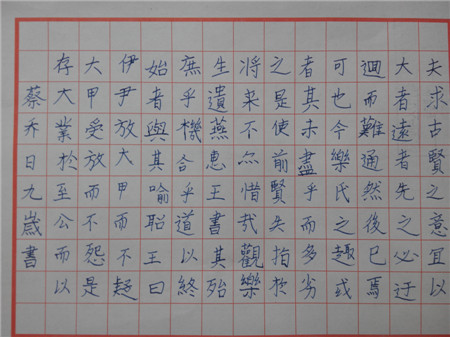 夫求古賢之意宜以
大者遠者先之必迂
迴而難通然後已焉
可也今樂氏之趣或
者其未盡乎而多劣
之是使前賢失指於
將来不亦惜哉觀樂
生遺燕惠王書其殆
庶乎機合乎道以終
始者與其喻昭王曰
伊尹放大甲而不疑
大甲受放而不怨是
存大業於至公而以
蔡乔日九歲書